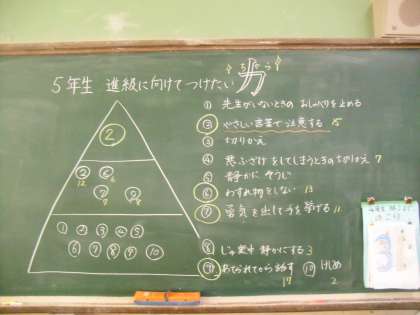 ちから
5年生 進級に向けてつけたい力
① 先生がいないときの おしゃべりを止める
② やさしい言葉で注意する 15
③ 切りかえ
④ 悪ふざけをしてしまうときの切りかえ 7
⑤ 静かに そうじ
⑥ わすれ物をしない 13
⑦ 勇気を出して手を挙げる 11
⑧ じゅ業中 静かにする 3
⑨ あてられてから話す 17 ⑩ けじめ 2
②
② 12 ⑥ ⑦ ⑨
① ② ③ ④ ⑤
⑥ ⑦ ⑧ ⑨ ⑩